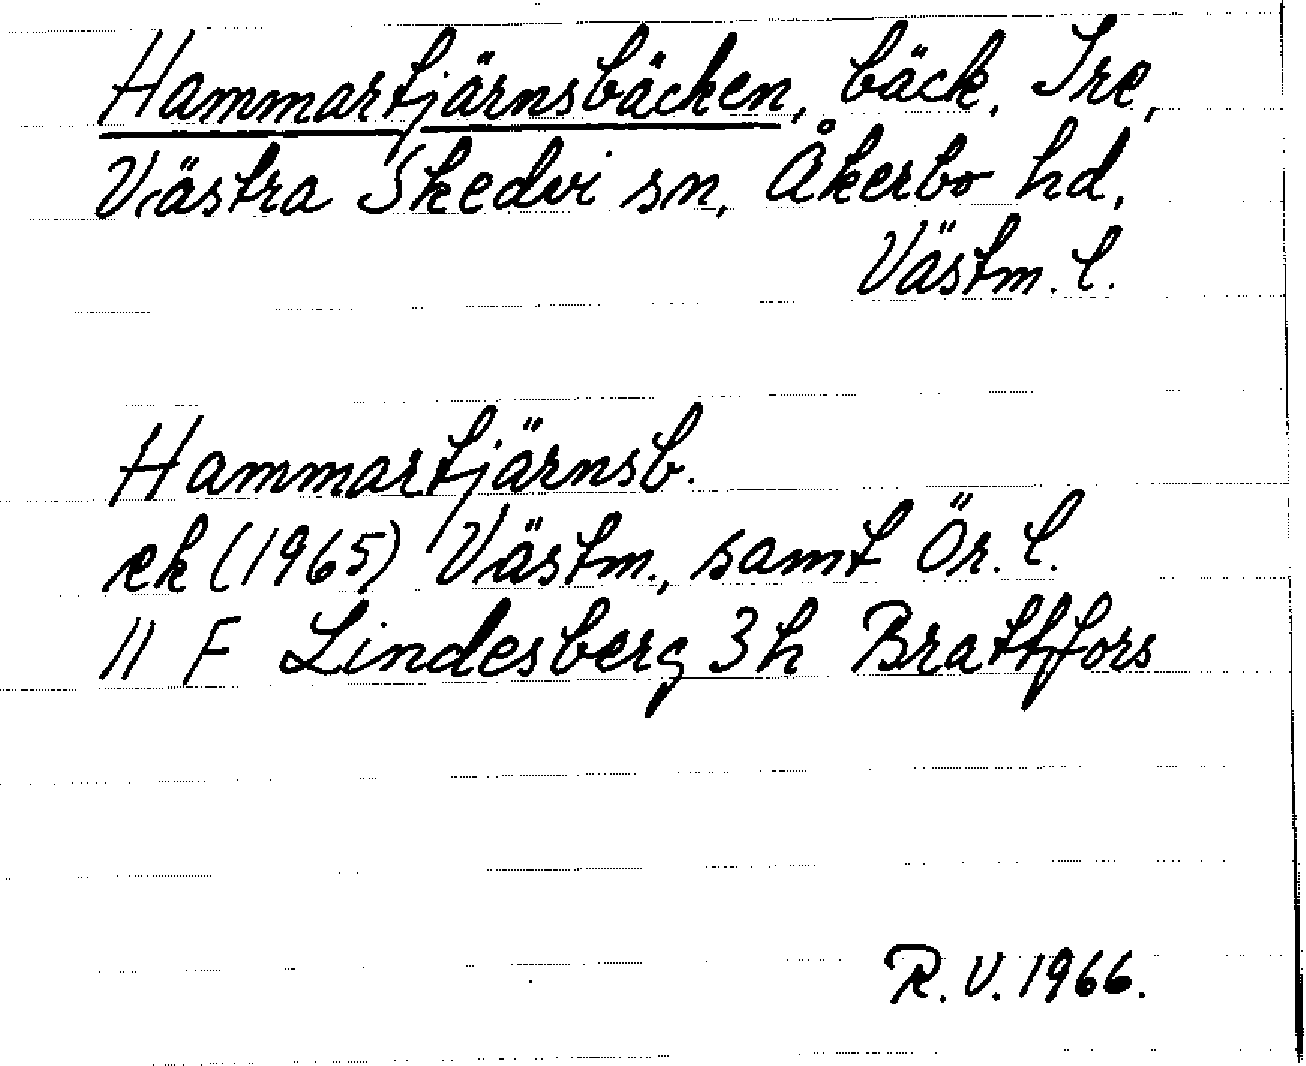 Hammartjärnsbäcken, bäck. Tre,
Västra Skedvi sn, Åkerbo hd,
Västm. l.
Hammartjärnsb.
ek (1965) Västm., samt Ör. l.
11 F Lindesberg 3h Brattfors
R.V. 1966.